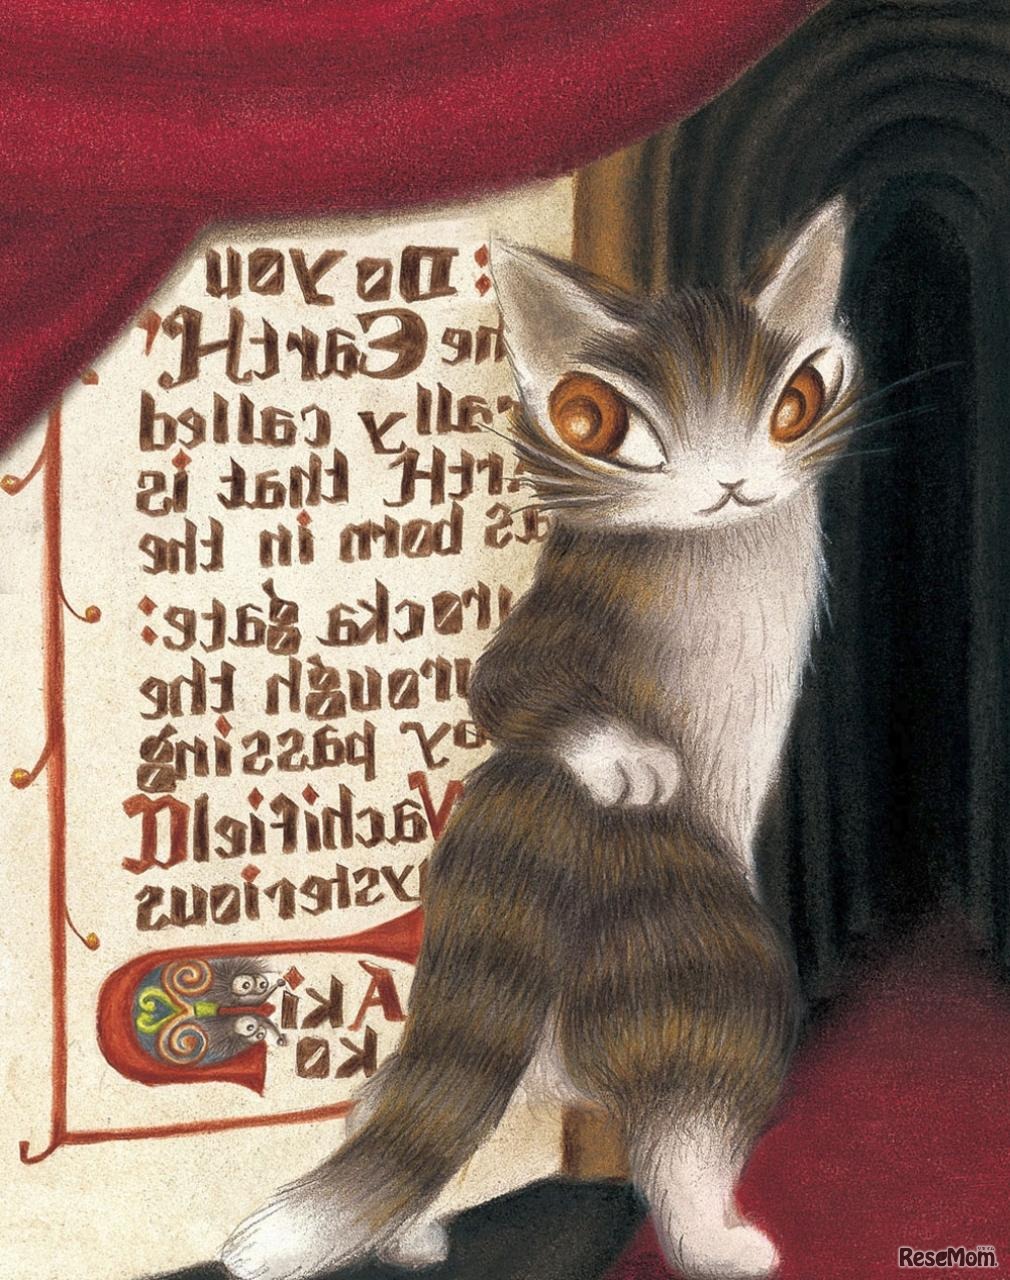 : Do you
he EartH
ally called
rtH that is
as born in the
rocka gate:
rough the
ay passing
Wachifield
ysterious
Aki
ko
ReseMom